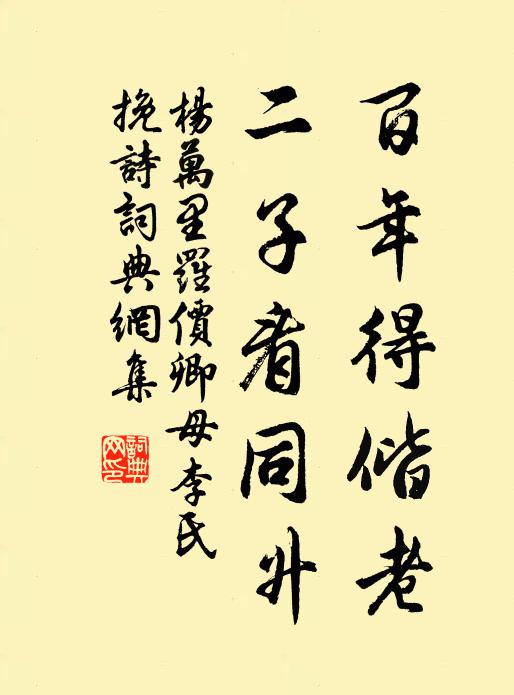 百年得偕老
二子看同升
楊萬里羅價卿母李氏
挽詩詞典網集
詞典网印